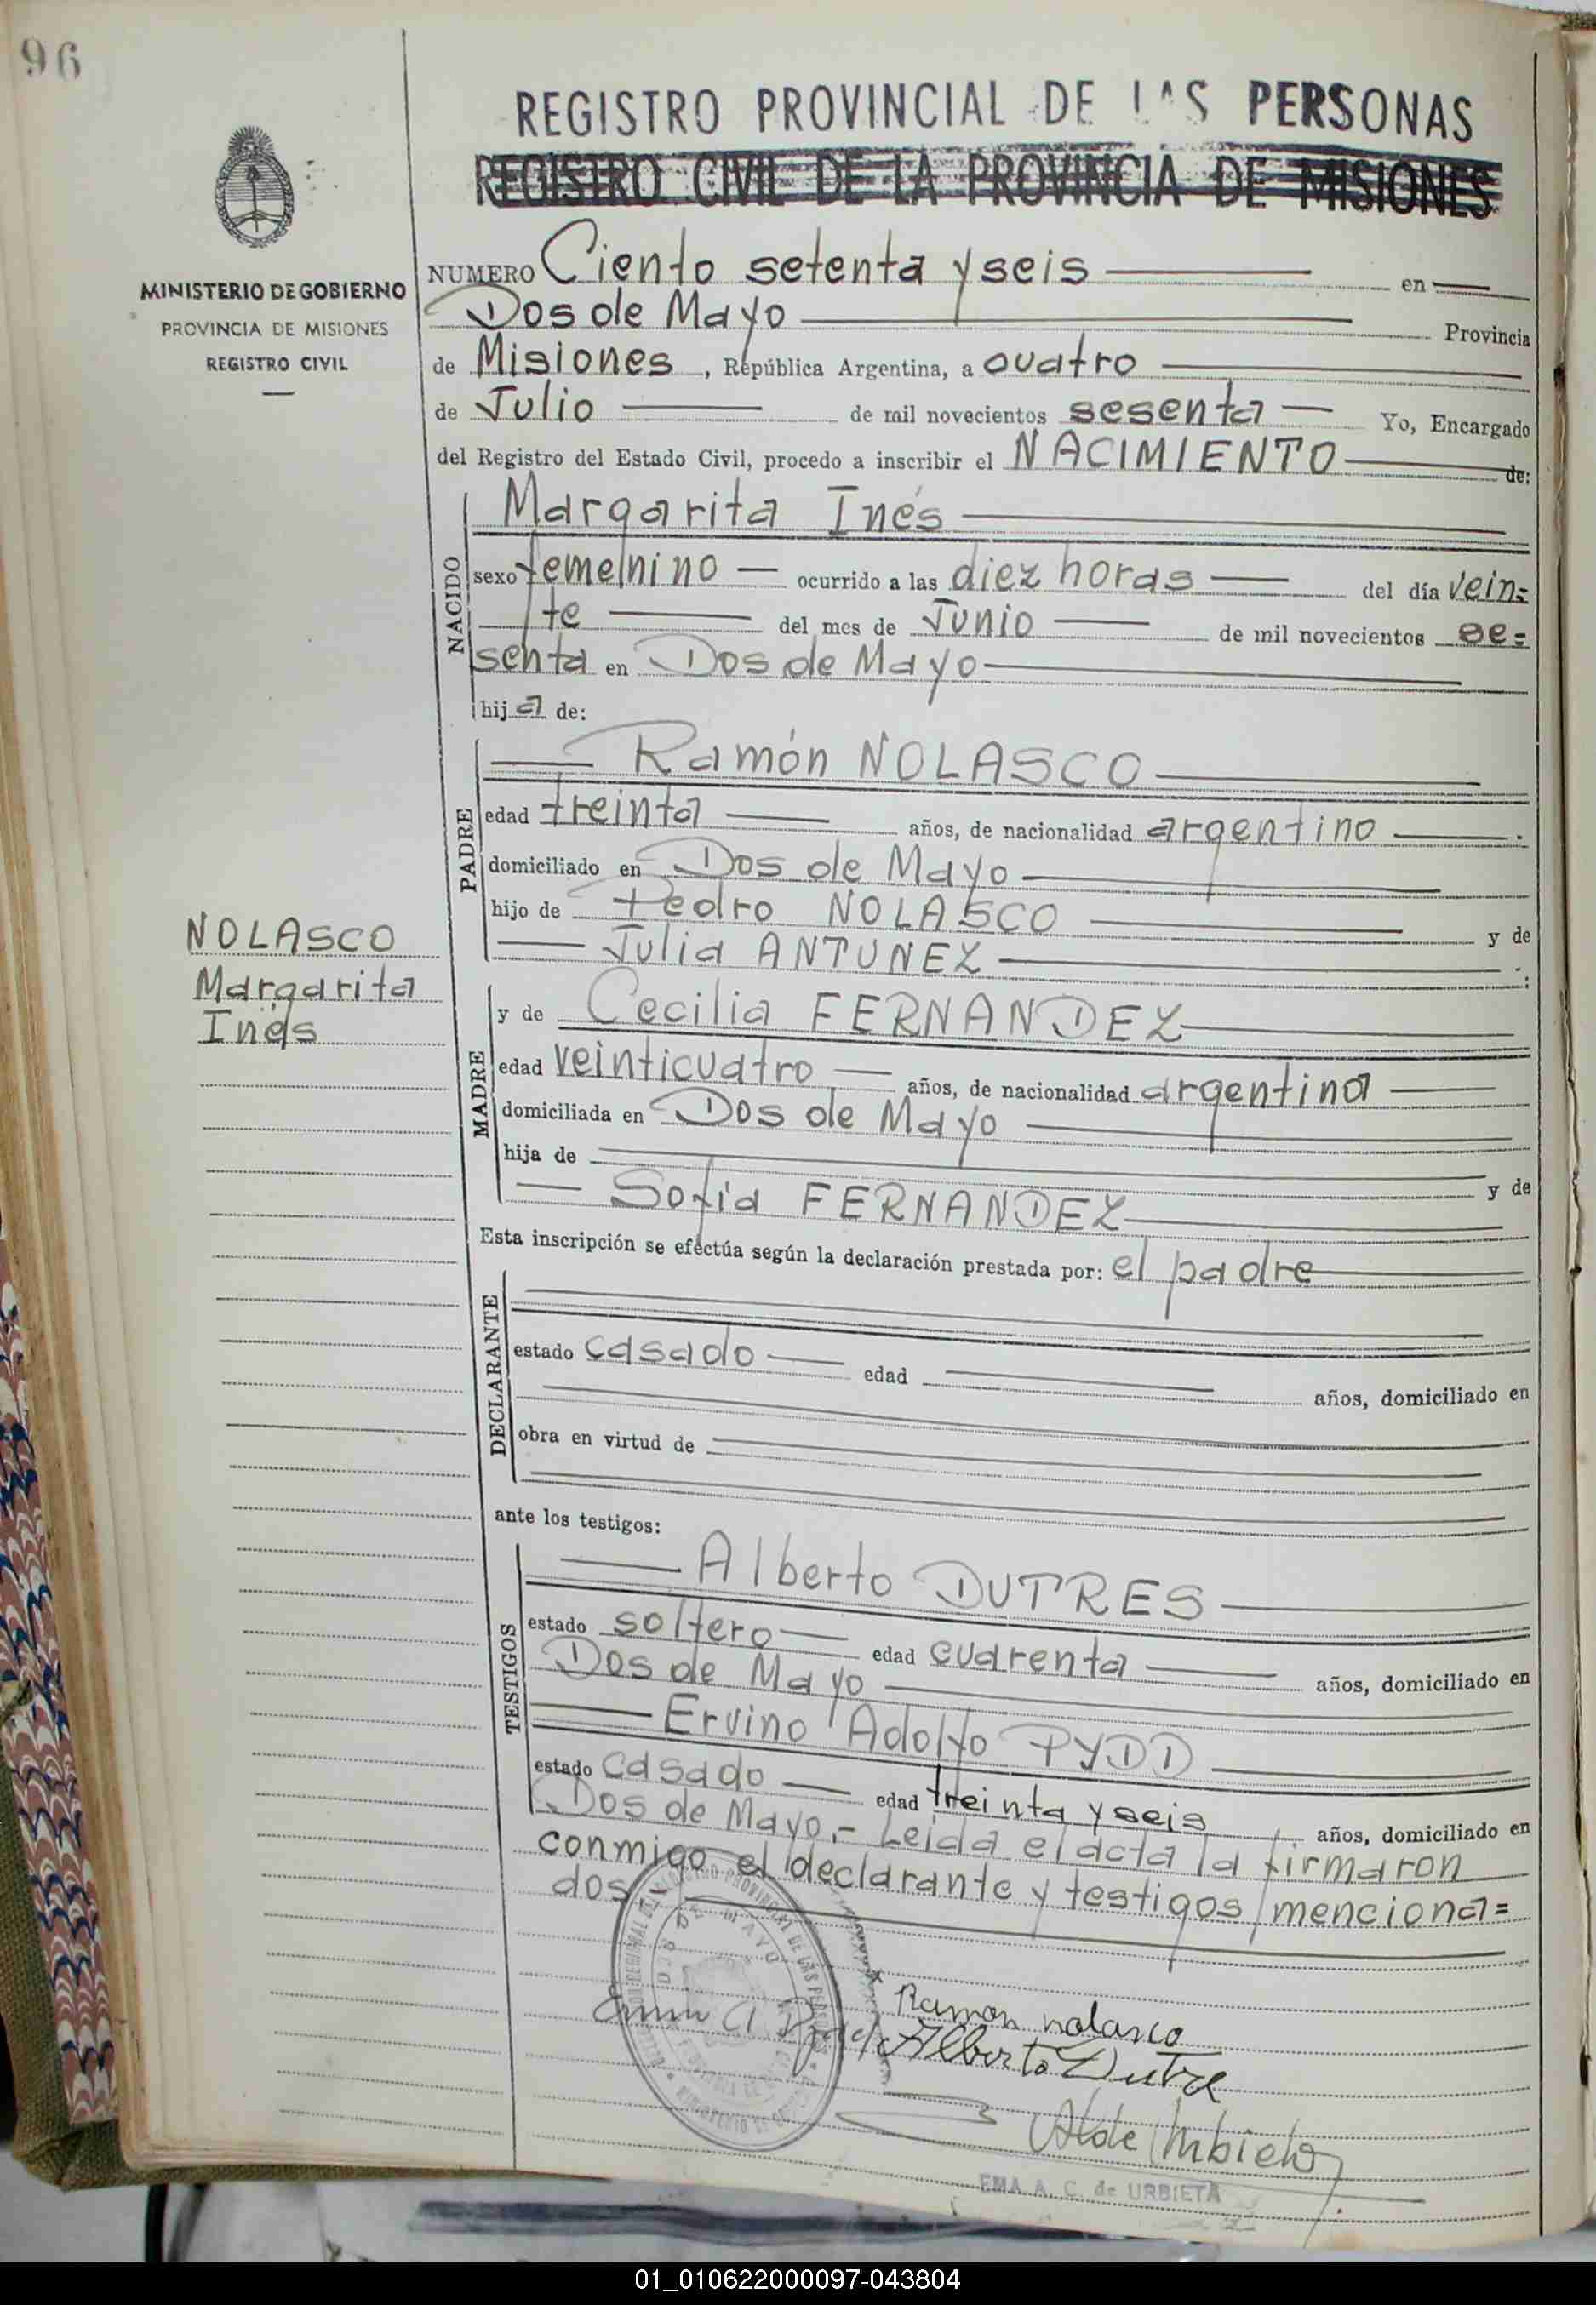 96
REGISTRO PROVINCIAL DE LAS PERSONAS
REGISTRO CIVIL DE LA PROVINCIA DE MISIONES
MINISTERIO DE GOBIERNO
PROVINCIA DE MISIONES
REGISTRO CIVIL
NUMERO Ciento setenta y seis en
Dos de Mayo Provincia
de Misiones, República Argentina, a cuatro
de Julio de mil novecientos sesenta Yo, Encargado
del Registro del Estado Civil, procedo a inscribir el NACIMIENTO de:
NACIDO
Margarita Inés
sexo femenino ocurrido a las diez horas del día vein=
te del mes de Junio de mil novecientos se=
senta en Dos de Mayo
hija de:
PADRE
Ramón NOLASCO
edad treinta años, de nacionalidad argentino
domiciliado en Dos de Mayo
hijo de Pedro NOLASCO y de
Julia ANTUNEZ
NOLASCO
Margarita
Inés
MADRE
y de Cecilia FERNANDEZ
edad veinticuatro años, de nacionalidad argentina
domiciliada en Dos de Mayo
hija de y de
Sofía FERNANDEZ
Esta inscripción se efectúa según la declaración prestada por: el padre
DECLARANTE
estado casado edad años, domiciliado en
obra en virtud de
ante los testigos:
TESTIGOS
Alberto DUTRES
estado soltero edad cuarenta años, domiciliado en
Dos de Mayo
Ervino Adolfo PYDD
estado casado edad treinta y seis años, domiciliado en
Dos de Mayo.- Leida el acta la firmaron
conmigo el declarante y testigos menciona=
dos.
DOS DE MAYO
Ramon nolasco
Alberto Dutre
EMA A. C. de URBIETA
01_010622000097-043804